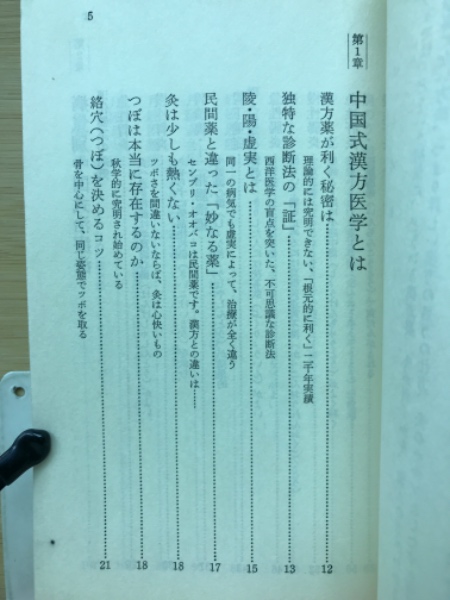 5
第1章
中国式漢方医学とは
漢方薬が利く秘密は……12
理論的には究明できない、「根元的に利く」二千年実績
独特な診断法の「証」……13
西洋医学の盲点を突いた、不可思議な診断法
陵・陽・虚実とは……15
同一の病気でも虚実によって、治療が全く違う
民間薬と違った「妙なる薬」……17
センブリ・オオバコは民間薬です。漢方との違いは……
灸は少しも熱くない……18
ツボさを間違いないならば、灸は心快いもの
つぼは本当に存在するのか……18
秋学的に究明され始めている
絡穴(つぼ)を決めるコツ……21
骨を中心にして、同じ姿態でツボを取る